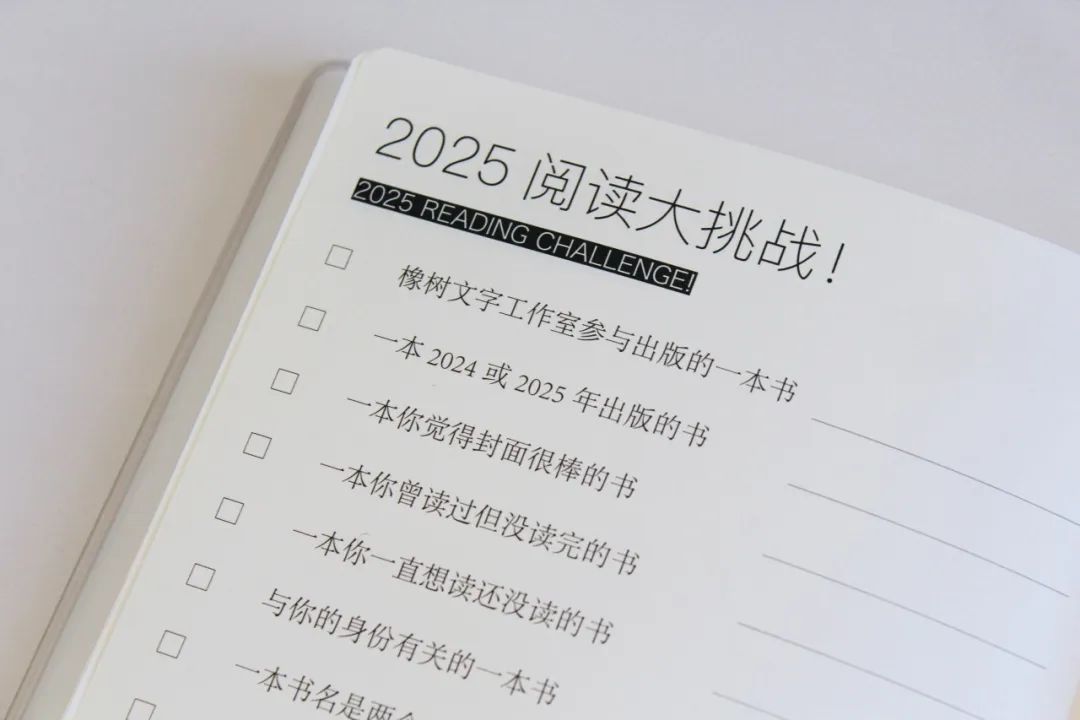 2025 阅读大挑战!
2025 READING CHALLENGE!
橡树文字工作室参与出版的一本书
一本 2024 或 2025 年出版的书
一本你觉得封面很棒的书
一本你曾读过但没读完的书
一本你一直想读还没读的书
与你的身份有关的一本书
一本书名是两个